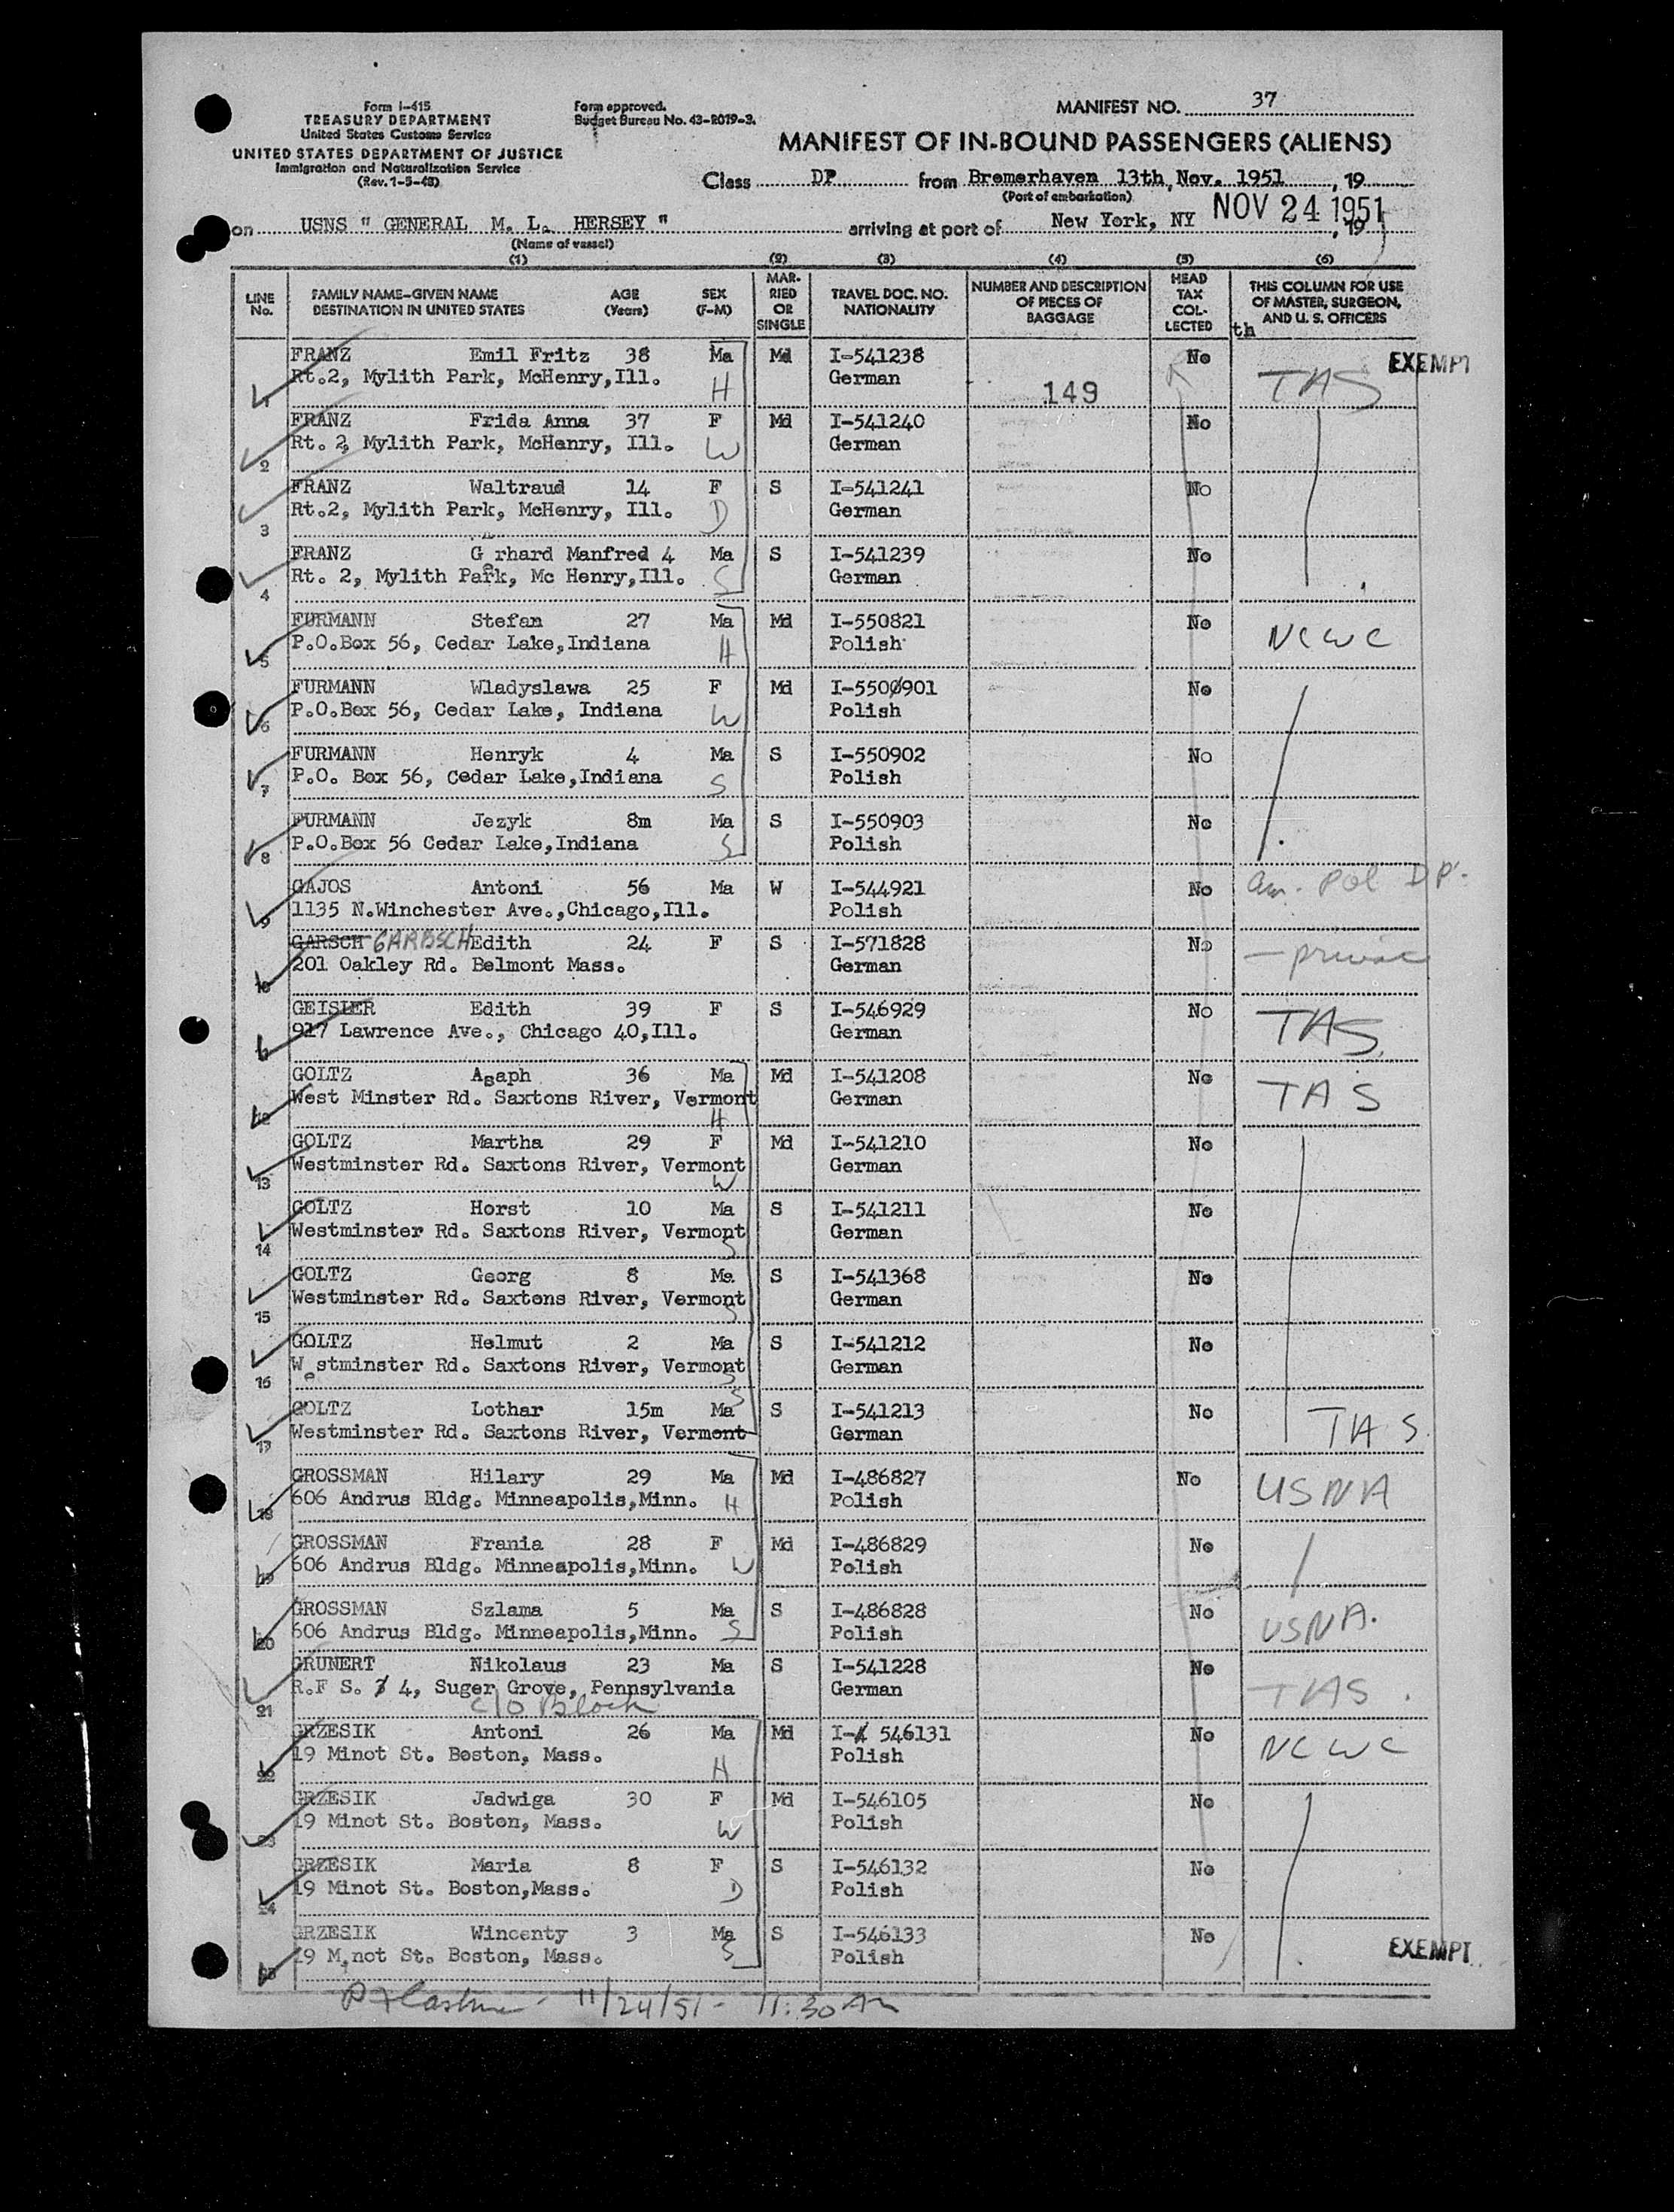 Form I-415
TREASURY DEPARTMENT
United States Customs Service
UNITED STATES DEPARTMENT OF JUSTICE
Immigration and Naturalization Service
(Rev. 1-5-48)
Form approved.
Budget Bureau No. 43-R019-3.
MANIFEST NO. 37
MANIFEST OF IN-BOUND PASSENGERS (ALIENS)
Class DP from Bremerhaven 13th, Nov. 1951, 19
(Port of embarkation)
on USNS " GENERAL M. L. HERSEY " arriving at port of New York, NY NOV 24 1951, 19
(Name of vessel)
(1) (2) (3) (4) (5) (6)
LINE No. FAMILY NAME-GIVEN NAME DESTINATION IN UNITED STATES AGE (Years) SEX (F-M) MARRIED OR SINGLE TRAVEL DOC. NO. NATIONALITY NUMBER AND DESCRIPTION OF PIECES OF BAGGAGE HEAD TAX COLLECTED THIS COLUMN FOR USE OF MASTER, SURGEON, AND U. S. OFFICERS
th
FRANZ Emil Fritz 38 Ma Md I-541238 No EXEMPT
1 Rt.2, Mylith Park, McHenry,Ill. H German 149 TAS
FRANZ Frida Anna 37 F Md I-541240 No
2 Rt. 2, Mylith Park, McHenry, Ill. W German
FRANZ Waltraud 14 F S I-541241 No
3 Rt.2, Mylith Park, McHenry, Ill. D German
FRANZ Gerhard Manfred 4 Ma S I-541239 No
4 Rt. 2, Mylith Park, Mc Henry,Ill. S German
FURMANN Stefan 27 Ma Md I-550821 No NCWC
5 P.O.Box 56, Cedar Lake,Indiana H Polish
FURMANN Wladyslawa 25 F Md I-5500901 No
6 P.O.Box 56, Cedar Lake, Indiana W Polish
FURMANN Henryk 4 Ma S I-550902 No
7 P.O. Box 56, Cedar Lake,Indiana S Polish
FURMANN Jezyk 8m Ma S I-550903 No
8 P.O.Box 56 Cedar Lake,Indiana S Polish
GAJOS Antoni 56 Ma W I-544921 No am. Pol DP.
9 1135 N.Winchester Ave.,Chicago,Ill. Polish
GARSCH GARBSCH Edith 24 F S I-571828 No
10 201 Oakley Rd. Belmont Mass. German
GEISLER Edith 39 F S I-546929 No TAS
917 Lawrence Ave., Chicago 40,Ill. German
GOLTZ Asaph 36 Ma Md I-541208 No TAS
12 West Minster Rd. Saxtons River, Vermont H German
GOLTZ Martha 29 F Md I-541210 No
13 Westminster Rd. Saxtons River, Vermont W German
GOLTZ Horst 10 Ma S I-541211 No
14 Westminster Rd. Saxtons River, Vermont S German
GOLTZ Georg 8 Ma S I-541368 No
15 Westminster Rd. Saxtons River, Vermont S German
GOLTZ Helmut 2 Ma S I-541212 No
16 Westminster Rd. Saxtons River, Vermont S German
GOLTZ Lothar 15m Ma S S I-541213 No TAS
17 Westminster Rd. Saxtons River, Vermont German
GROSSMAN Hilary 29 Ma Md I-486827 No USNA
18 606 Andrus Bldg. Minneapolis,Minn. H Polish
GROSSMAN Frania 28 F Md I-486829 No
19 606 Andrus Bldg. Minneapolis,Minn. W Polish
GROSSMAN Szlama 5 Ma S I-486828 No USNA.
20 606 Andrus Bldg. Minneapolis,Minn. S Polish
GRUNERT Nikolaus 23 Ma S I-541228 No TAS.
21 R.F S. 4, Suger Grove, Pennsylvania German
c/o Block
GRZESIK Antoni 26 Ma Md I- 546131 No NCWC
22 19 Minot St. Boston, Mass. H Polish
GRZESIK Jadwiga 30 F Md I-546105 No
23 19 Minot St. Boston, Mass. W Polish
GRZESIK Maria 8 F S I-546132 No
24 19 Minot St. Boston,Mass. D Polish
GRZESIK Wincenty 3 Ma S I-546133 No EXEMPT
25 19 Minot St. Boston, Mass. S Polish
11/24/51 - 11:30 AM